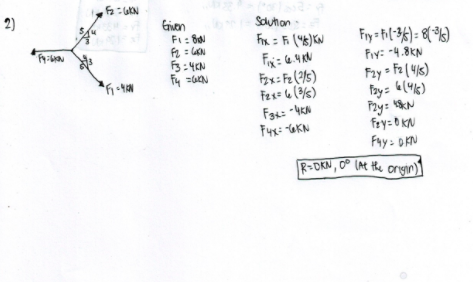 2)
F2 = 6KN
5 4
3
F4=6KN
5 3
F1 = 4KN
Given
F1 = 8KN
F2 = 6KN
F3 = 4KN
F4 = 6KN
Solution
F1x = F1 (4/5) KN
F1x = 6.4KN
F2x = F2 (3/5)
F2x = 6 (3/5)
F3x = -4KN
F4x = -6KN
F1y = F1 (-3/5) = 8(-3/5)
F1y = -4.8KN
F2y = F2 (4/5)
F2y = 6 (4/5)
F2y = 4.8KN
F3y = 0 KN
F4y = 0 KN
R = 0KN, 0° (At the origin)